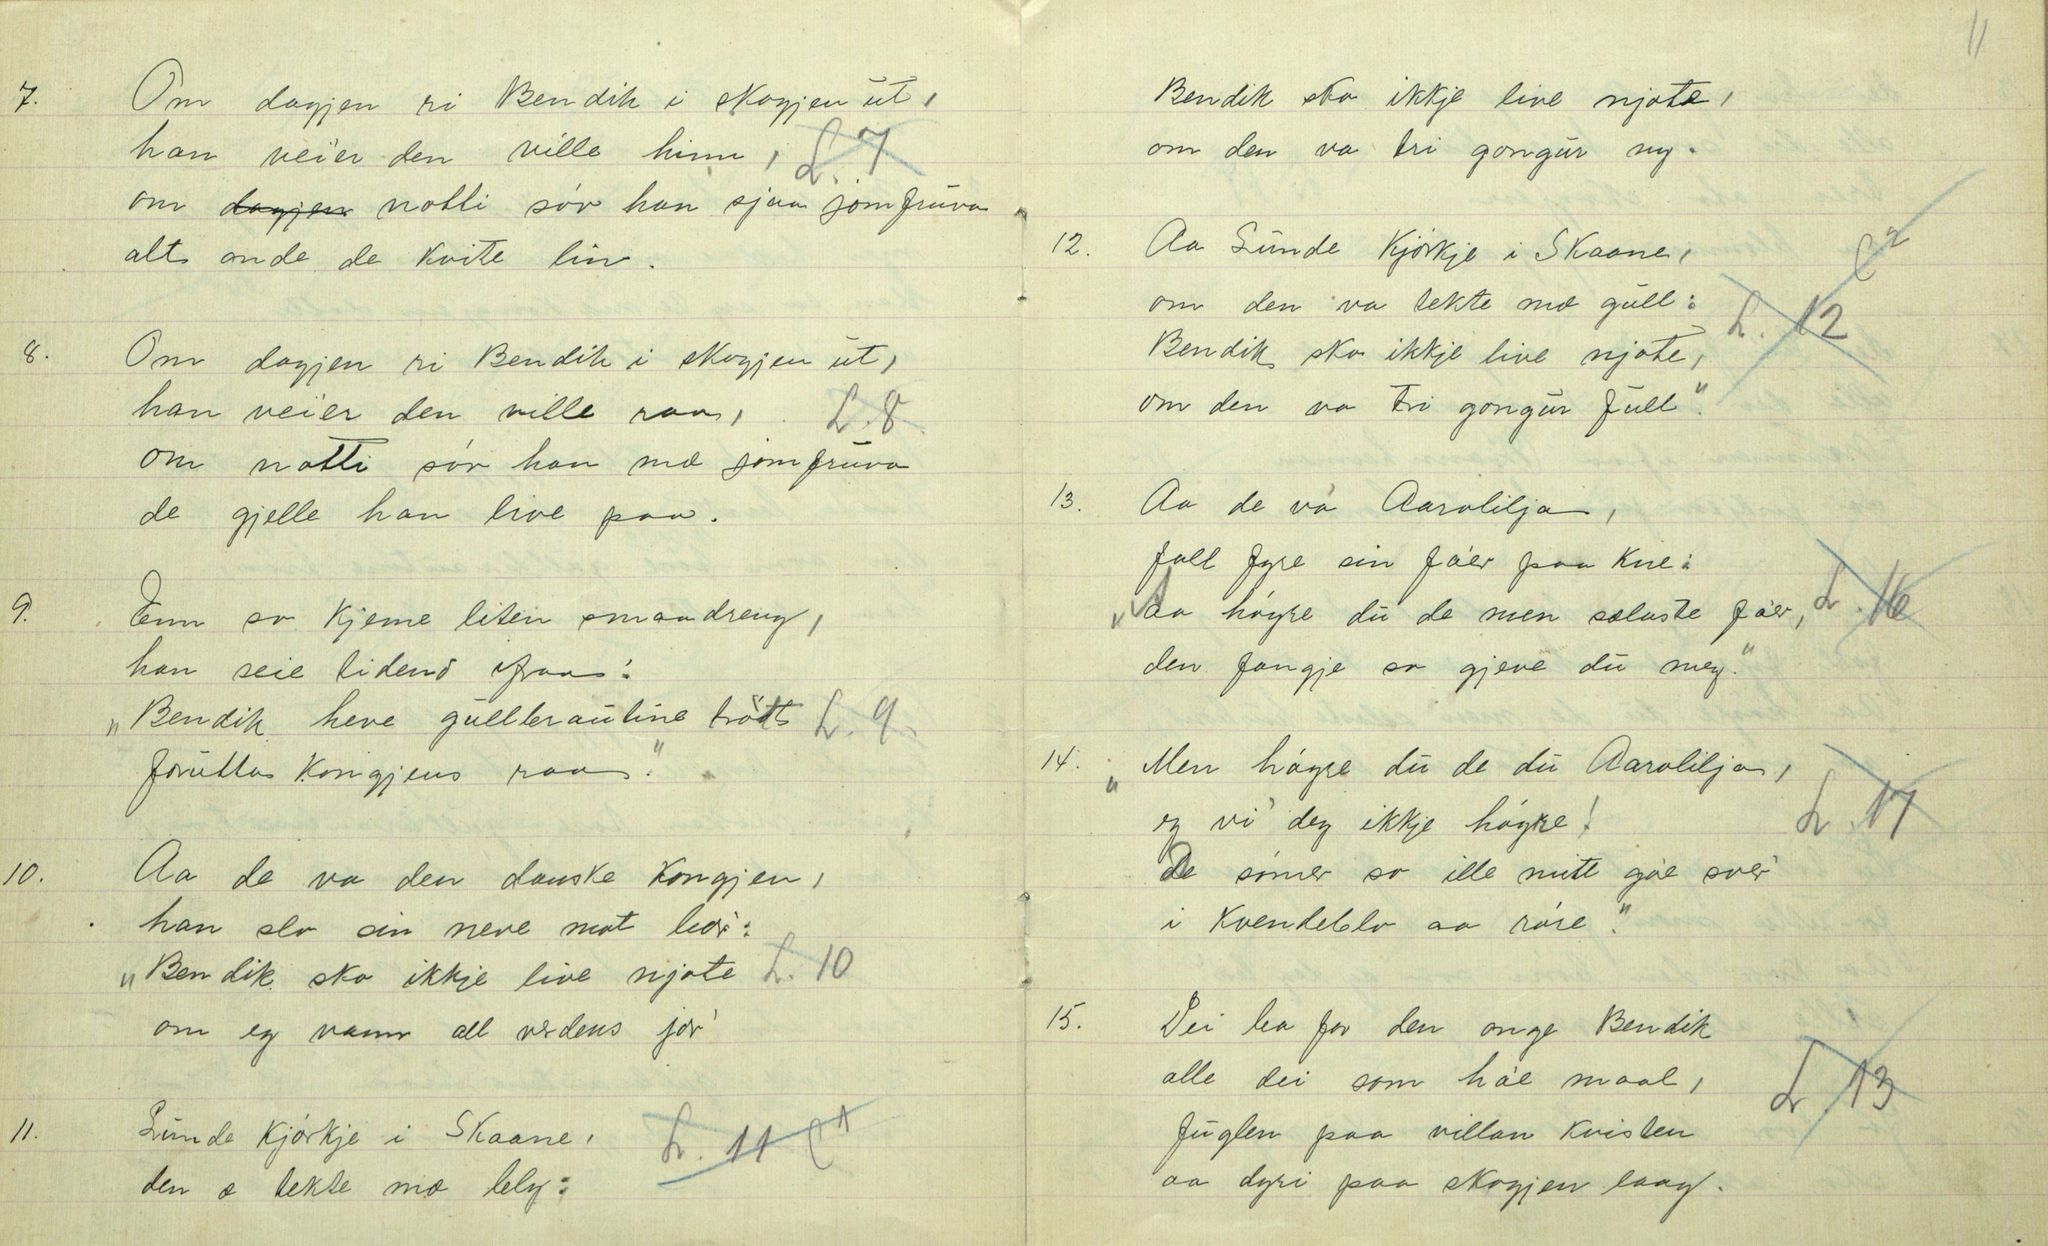 7. Om dagjen ri Bendik i skogjen ut,
han veier den ville hinn, L. 7
om dagjen notti sóv han sjaa jomfruva
alt onde de kvite lin.
8. Om dagjen ri Bendik i skogjen ut,
han veier den ville raa, L. 8
om notti sóv han mæ jomfruva
de gjelle han live paa.
9. Enn so kjeme liten smaadreng,
han seie tidend ifraa:
„Bendik heve gullbrautine trødt L. 9.
forutta kongjens raa."
10. Aa de va den danske kongjen,
han slo sin neve mot bor':
„Bendik ska ikkje live njote L. 10
om eg vann all verdens jor'
11. Lunde kjórkje i Skaane, L. 11
den æ tekte mæ bly:
11
Bendik ska ikkje live njote,
om den va tri gongur ny.
12. Aa Lunde kjórkje i Skaane,
om den va tekte mæ gull: L. 12
Bendik ska ikkje live njote,
om den va tri gongur full".
13. Aa de va Aarolilja,
fall fyre sin fáer paa kne:
„Aa hóyre du de men sælaste fáer, L. 16
den fangje so gjeve du meg."
14. „Men hóyre du de du Aarolilja,
eg vi' deg ikkje hóyre! L. 17
De sómer so ille mitt góe svær'
i kvendeblo aa róre."
15. Dei ba for den onge Bendik
alle dei som háe maal, L 13
fuglen paa villan kvisten
aa dyri paa skogjen laag.